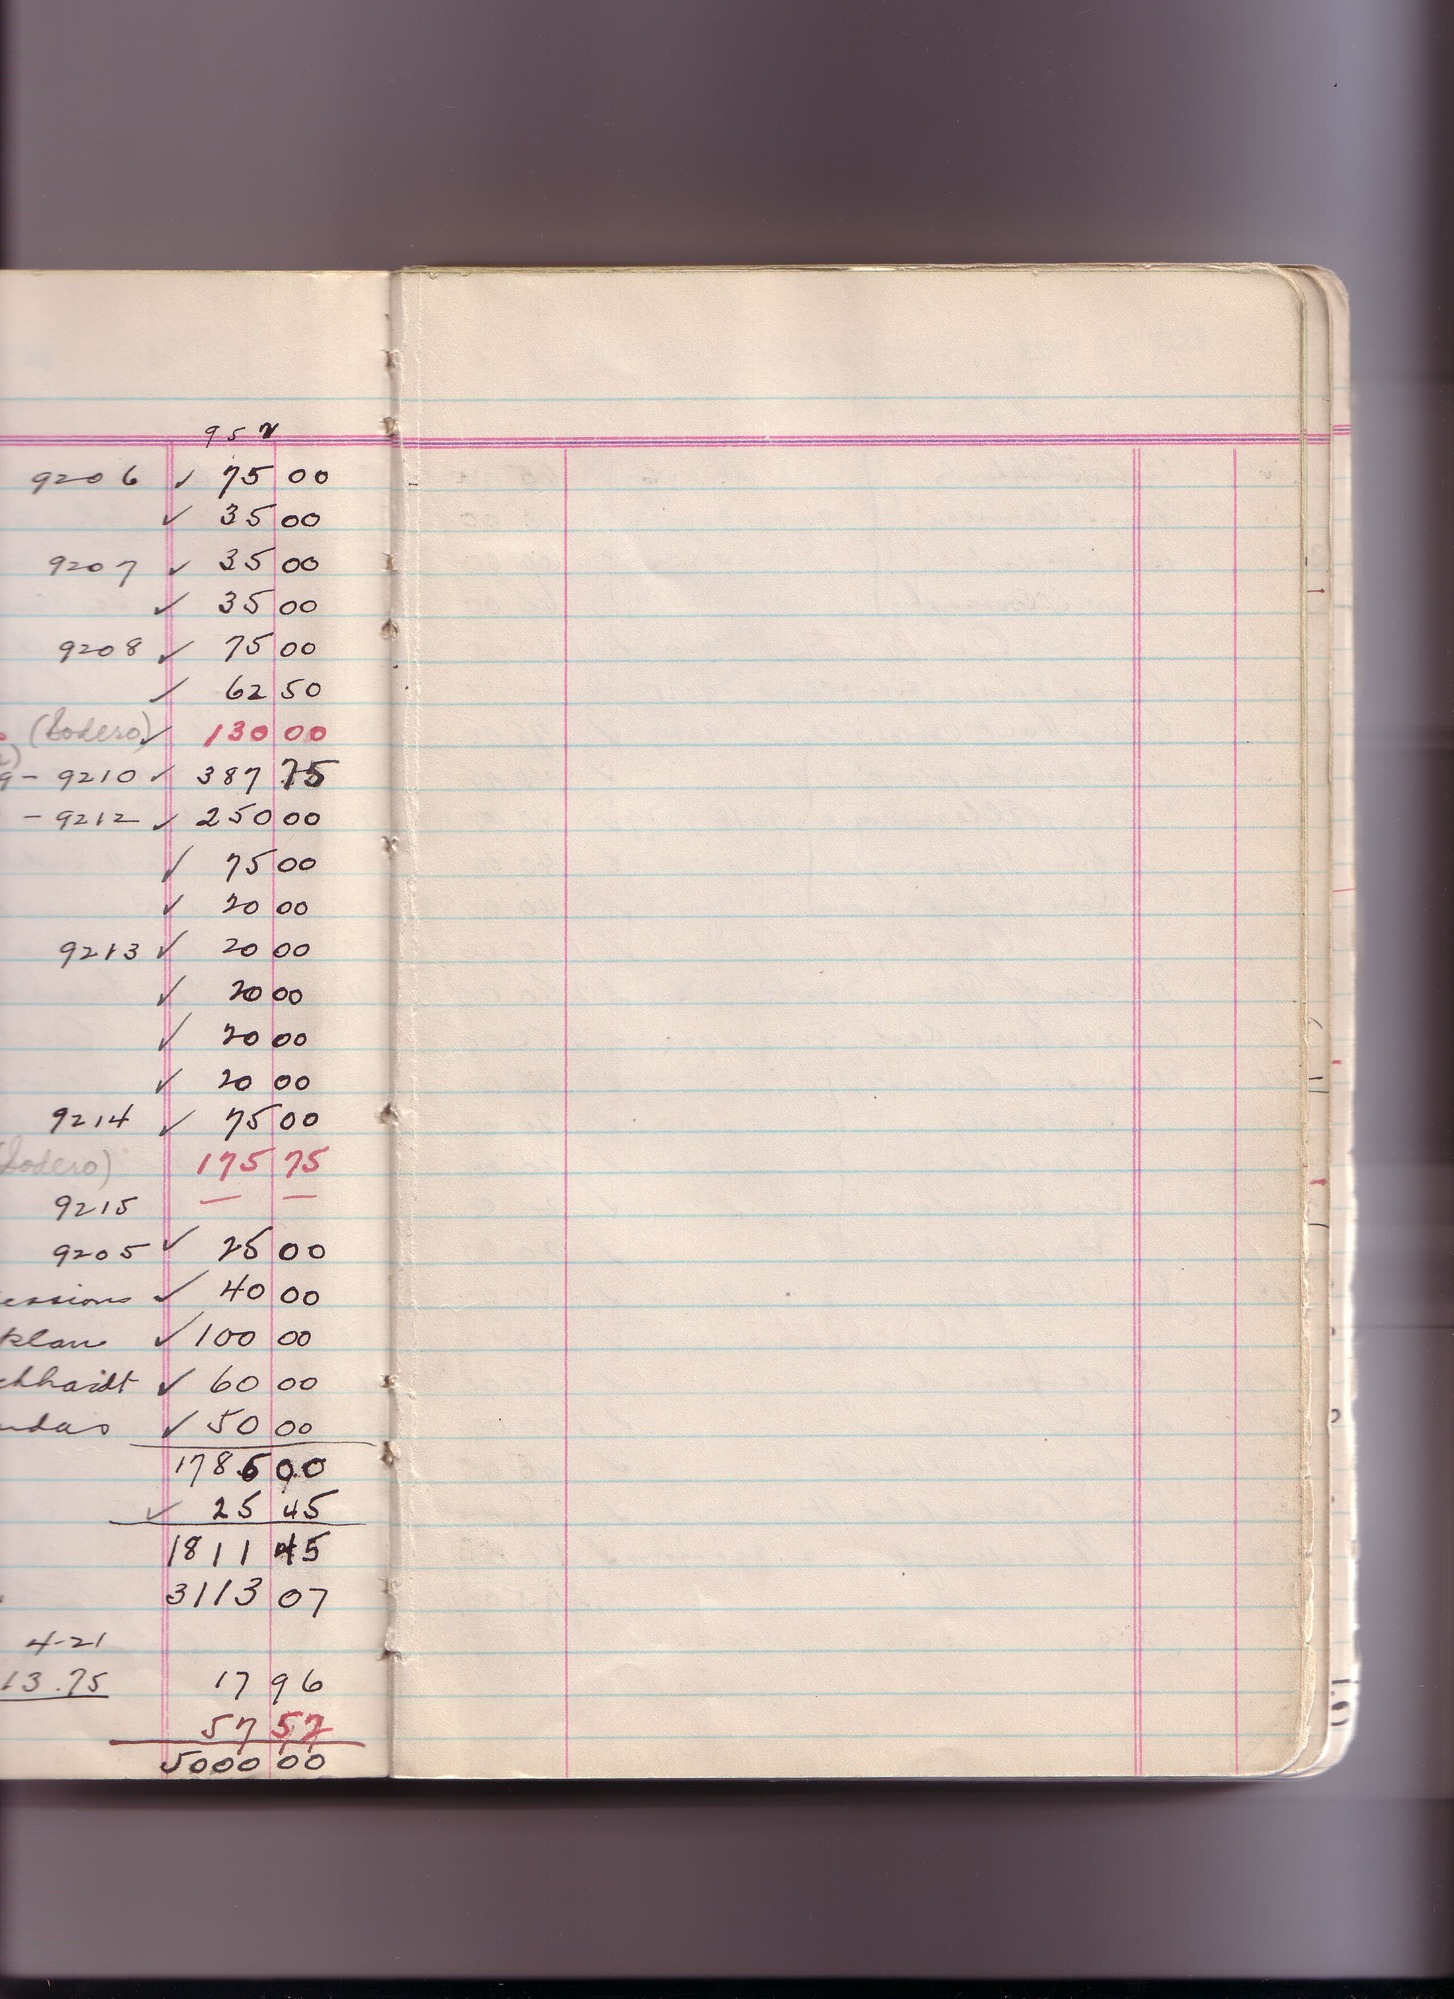 952
9206 ✓ 75 00
✓ 35 00
9207 ✓ 35 00
✓ 35 00
9208 ✓ 75 00
✓ 62 50
(Sodero) ✓ 130 00
9- 9210 ✓ 387 75
- 9212 ✓ 250 00
✓ 75 00
✓ 20 00
9213 ✓ 20 00
✓ 20 00
✓ 20 00
✓ 20 00
9214 ✓ 75 00
(Sodero) 175 75
9215 — —
9205 ✓ 25 00
essions ✓ 40 00
klan ✓ 100 00
chhardt ✓ 60 00
ndas ✓ 50 00
1786 00
✓ 25 45
1811 45
3113 07
4-21
13.75 17 96
57 52
5000 00